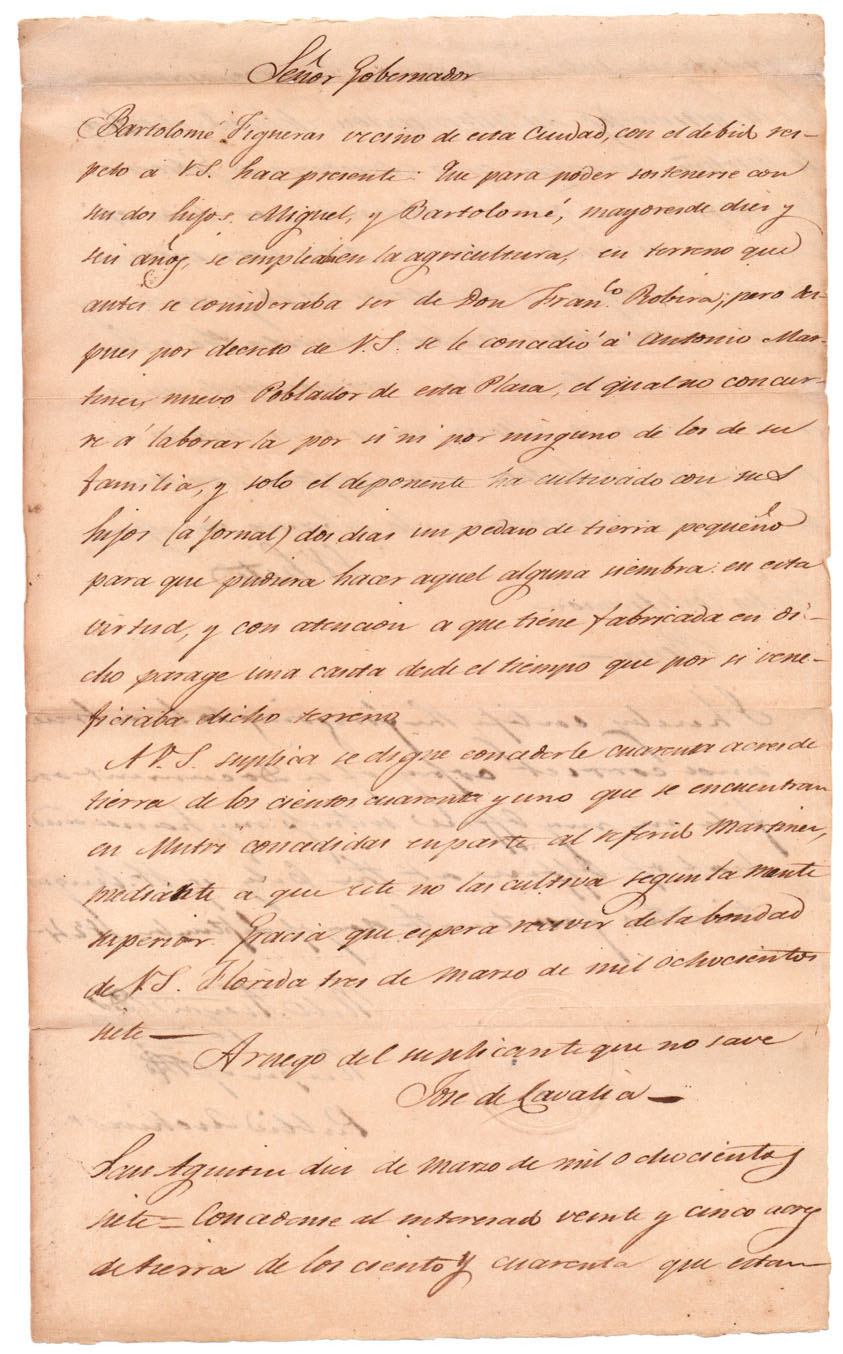 Señor Gobernador
Bartolomé Figueras vecino de esta Ciudad, con el debid res-
peto á V.S. hace presente: Que para poder sostenerse con
sus dos hijos, Miguel, y Bartolomé, mayores de diez y
seis años, se emplean en la agricultura, en terreno que
antes se consideraba ser de Don Fran.co Robira; pero des-
pues por decreto de V.S. se le concedió á Antonio Mar-
tinez, nuevo Poblador de esta Plaza, el qual no concur-
re á laborarla por si ni por ninguno de los de su
familia, y solo el deponente ha cultivado con sus
hijos (á Jornal) dos dias un pedazo de tierra pequeño
para que pudiera hacer aquel alguna siembra: en esta
virtud, y con atencion a que tiene fabricada en di-
cho parage una casita desde el tiempo que por si vene-
ficiaba dicho terreno
A V.S. suplica se digne concederle cuarenta acres de
tierra de los cientos cuarenta y uno que se encuentran
en concedidas en parte al referid Martinez,
mediante á que este no las cultiva segun la mente
superior. Gracia que espera recivir de la bondad
de V.S. Florida tres de Marzo de mil ochocientos
siete —
A ruego del suplicante que no save
Jose de —
San Agustin diez de Marzo de mil ochocientos
siete = Concedense al interesad veinte y cinco acres
de tierra de los ciento y cuarenta que estan